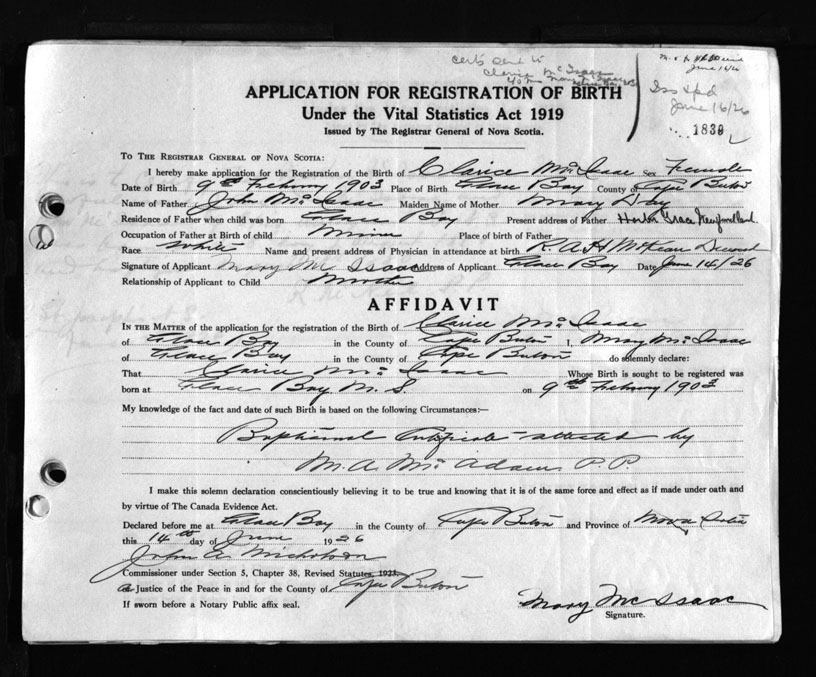 certs sent to
Clarice McIsaac
c/o Mrs Mary McIsaac
June 16/26
Iss & pd
June 16/26
1839
APPLICATION FOR REGISTRATION OF BIRTH
Under the Vital Statistics Act 1919
Issued by The Registrar General of Nova Scotia.
TO THE REGISTRAR GENERAL OF NOVA SCOTIA:
I hereby make application for the Registration of the Birth of Clarice McIsaac Sex Female
Date of Birth 9th February 1903 Place of Birth Glace Bay County of Cape Breton
Name of Father John McIsaac Maiden Name of Mother Mary Day
Residence of Father when child was born Glace Bay Present address of Father Harbor Grace Newfoundland
Occupation of Father at Birth of child Miner Place of birth of Father
Race White Name and present address of Physician in attendance at birth R. A. H. McKean Deceased
Signature of Applicant Mary McIsaac Address of Applicant Glace Bay Date June 14/26
Relationship of Applicant to Child Mother
AFFIDAVIT
IN THE MATTER of the application for the registration of the Birth of Clarice McIsaac
of Glace Bay in the County of Cape Breton I, Mary McIsaac
of Glace Bay in the County of Cape Breton do solemnly declare:
That Clarice McIsaac Whose Birth is sought to be registered was
born at Glace Bay N. S. on 9th February 1903
My knowledge of the fact and date of such Birth is based on the following Circumstances:—
Baptismal Certificate attested by
M. A. McAdam P. P.
I make this solemn declaration conscientiously believing it to be true and knowing that it is of the same force and effect as if made under oath and
by virtue of The Canada Evidence Act.
Declared before me at Glace Bay in the County of Cape Breton and Province of Nova Scotia
this 14th day of June 1926
John A. Nicholson
Commissioner under Section 5, Chapter 38, Revised Statutes, 1923
A Justice of the Peace in and for the County of Cape Breton
If sworn before a Notary Public affix seal.
Mary McIsaac
Signature.